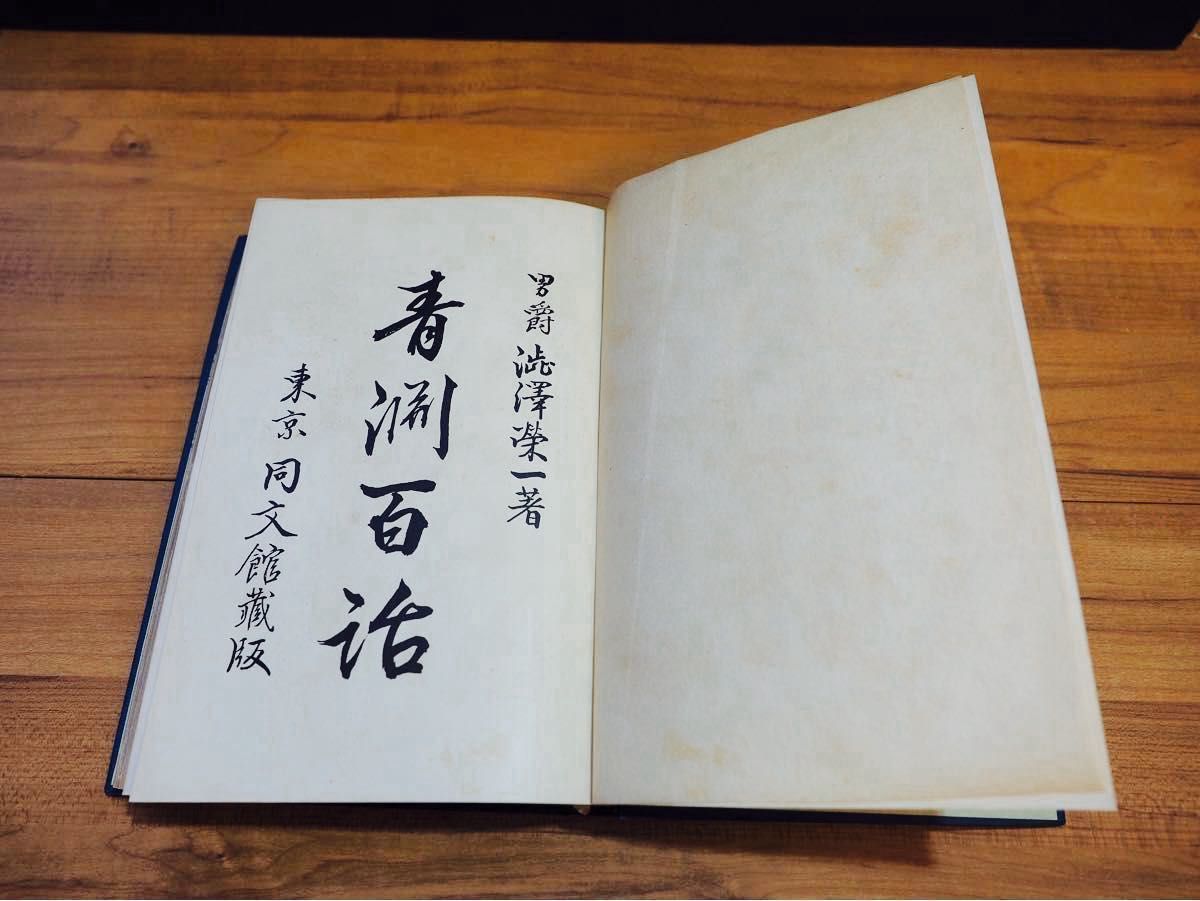 男爵 澁澤榮一著
青淵百話
東京 同文館藏版